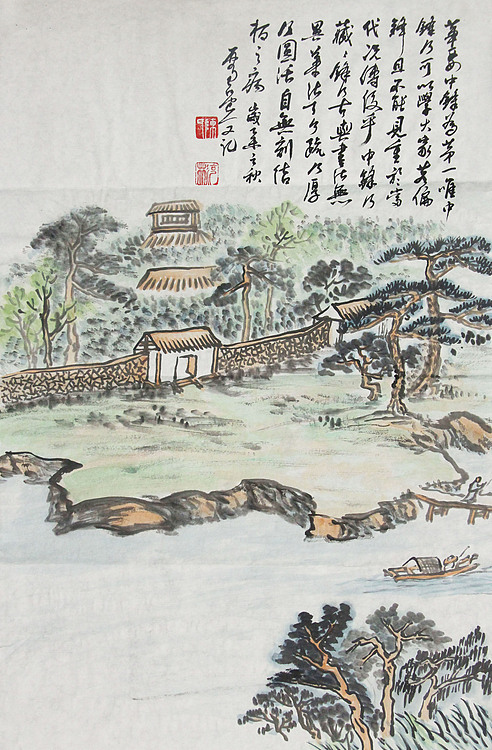 筆筆中鋒為第一唯中
鋒乃可以學大家若偏
鋒且不能見重於當
代況傳後乎中鋒乃
藏〻鋒乃古與書法無
異筆法古乃疏乃厚
乃圓活自無刻結
板之病 歲之秋
又記